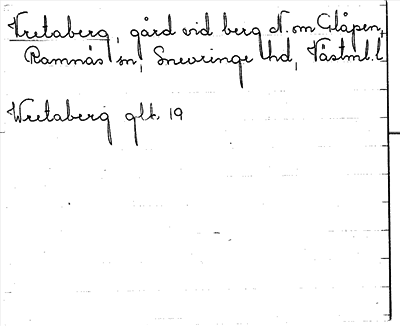 Vretaberg, gård vid berg N. om Glåpen,
Ramnäs sn, Snevringe hd, Västml. l
Wretaberg glk. 19